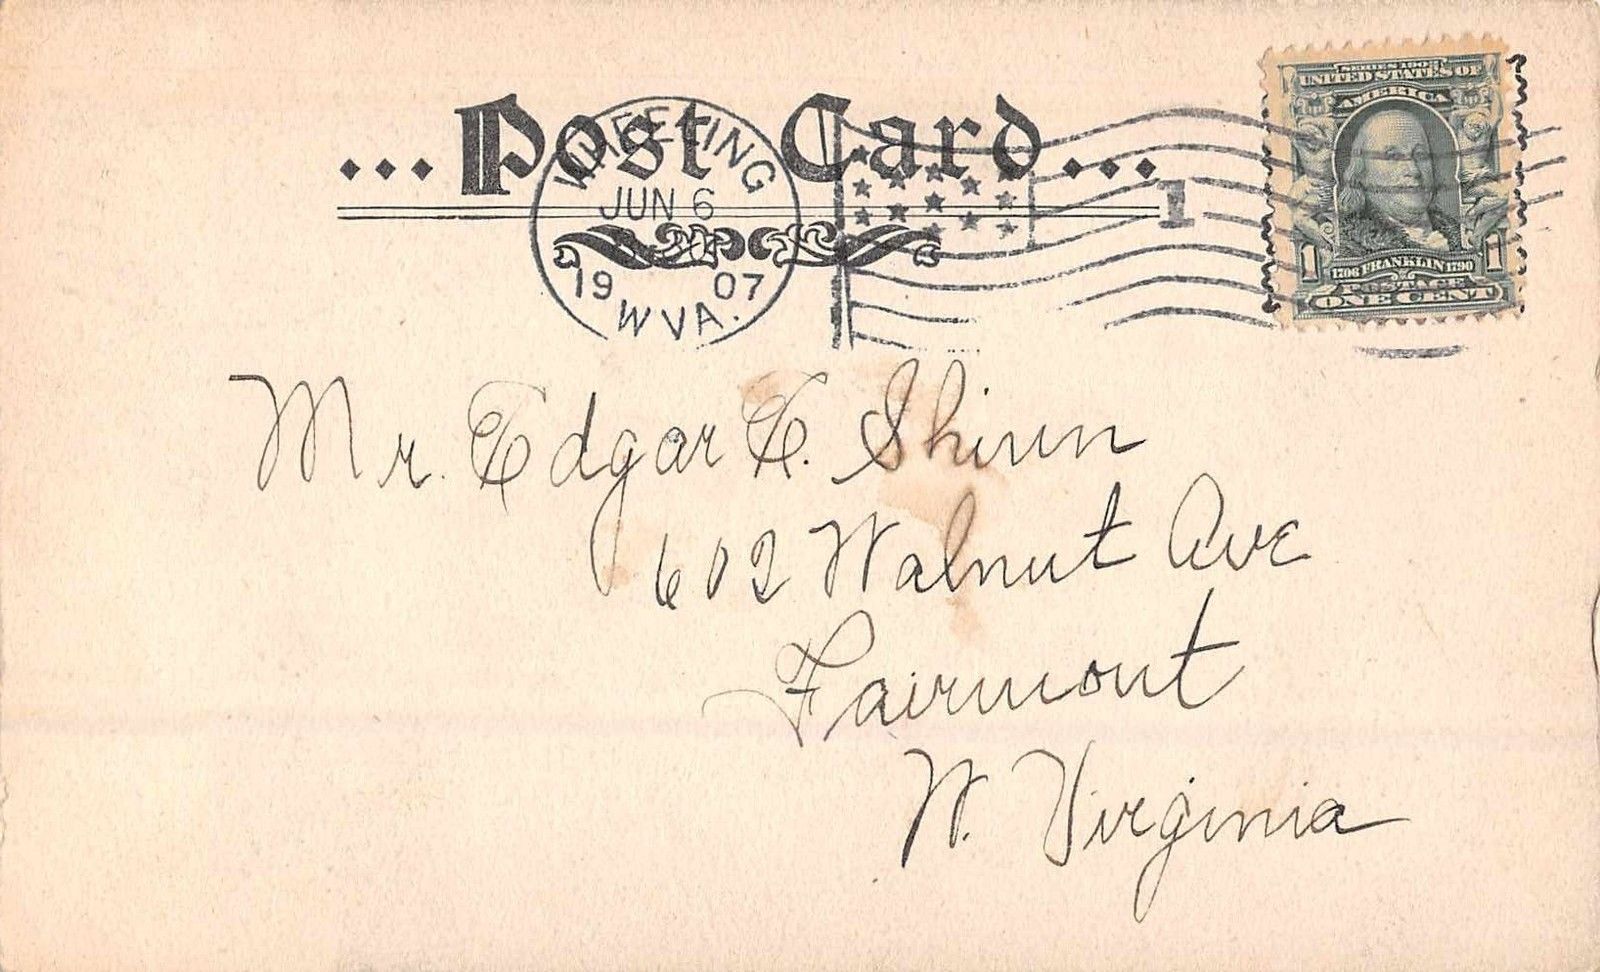 ...Post Card...
WHEELING
JUN 6
19 07
W VA.
1
SERIES 1902
UNITED STATES OF
AMERICA
1 1706 FRANKLIN 1790 1
POSTAGE
ONE CENT
Mr. Edgar E. Shinn
602 Walnut Ave
Fairmont
W. Virginia